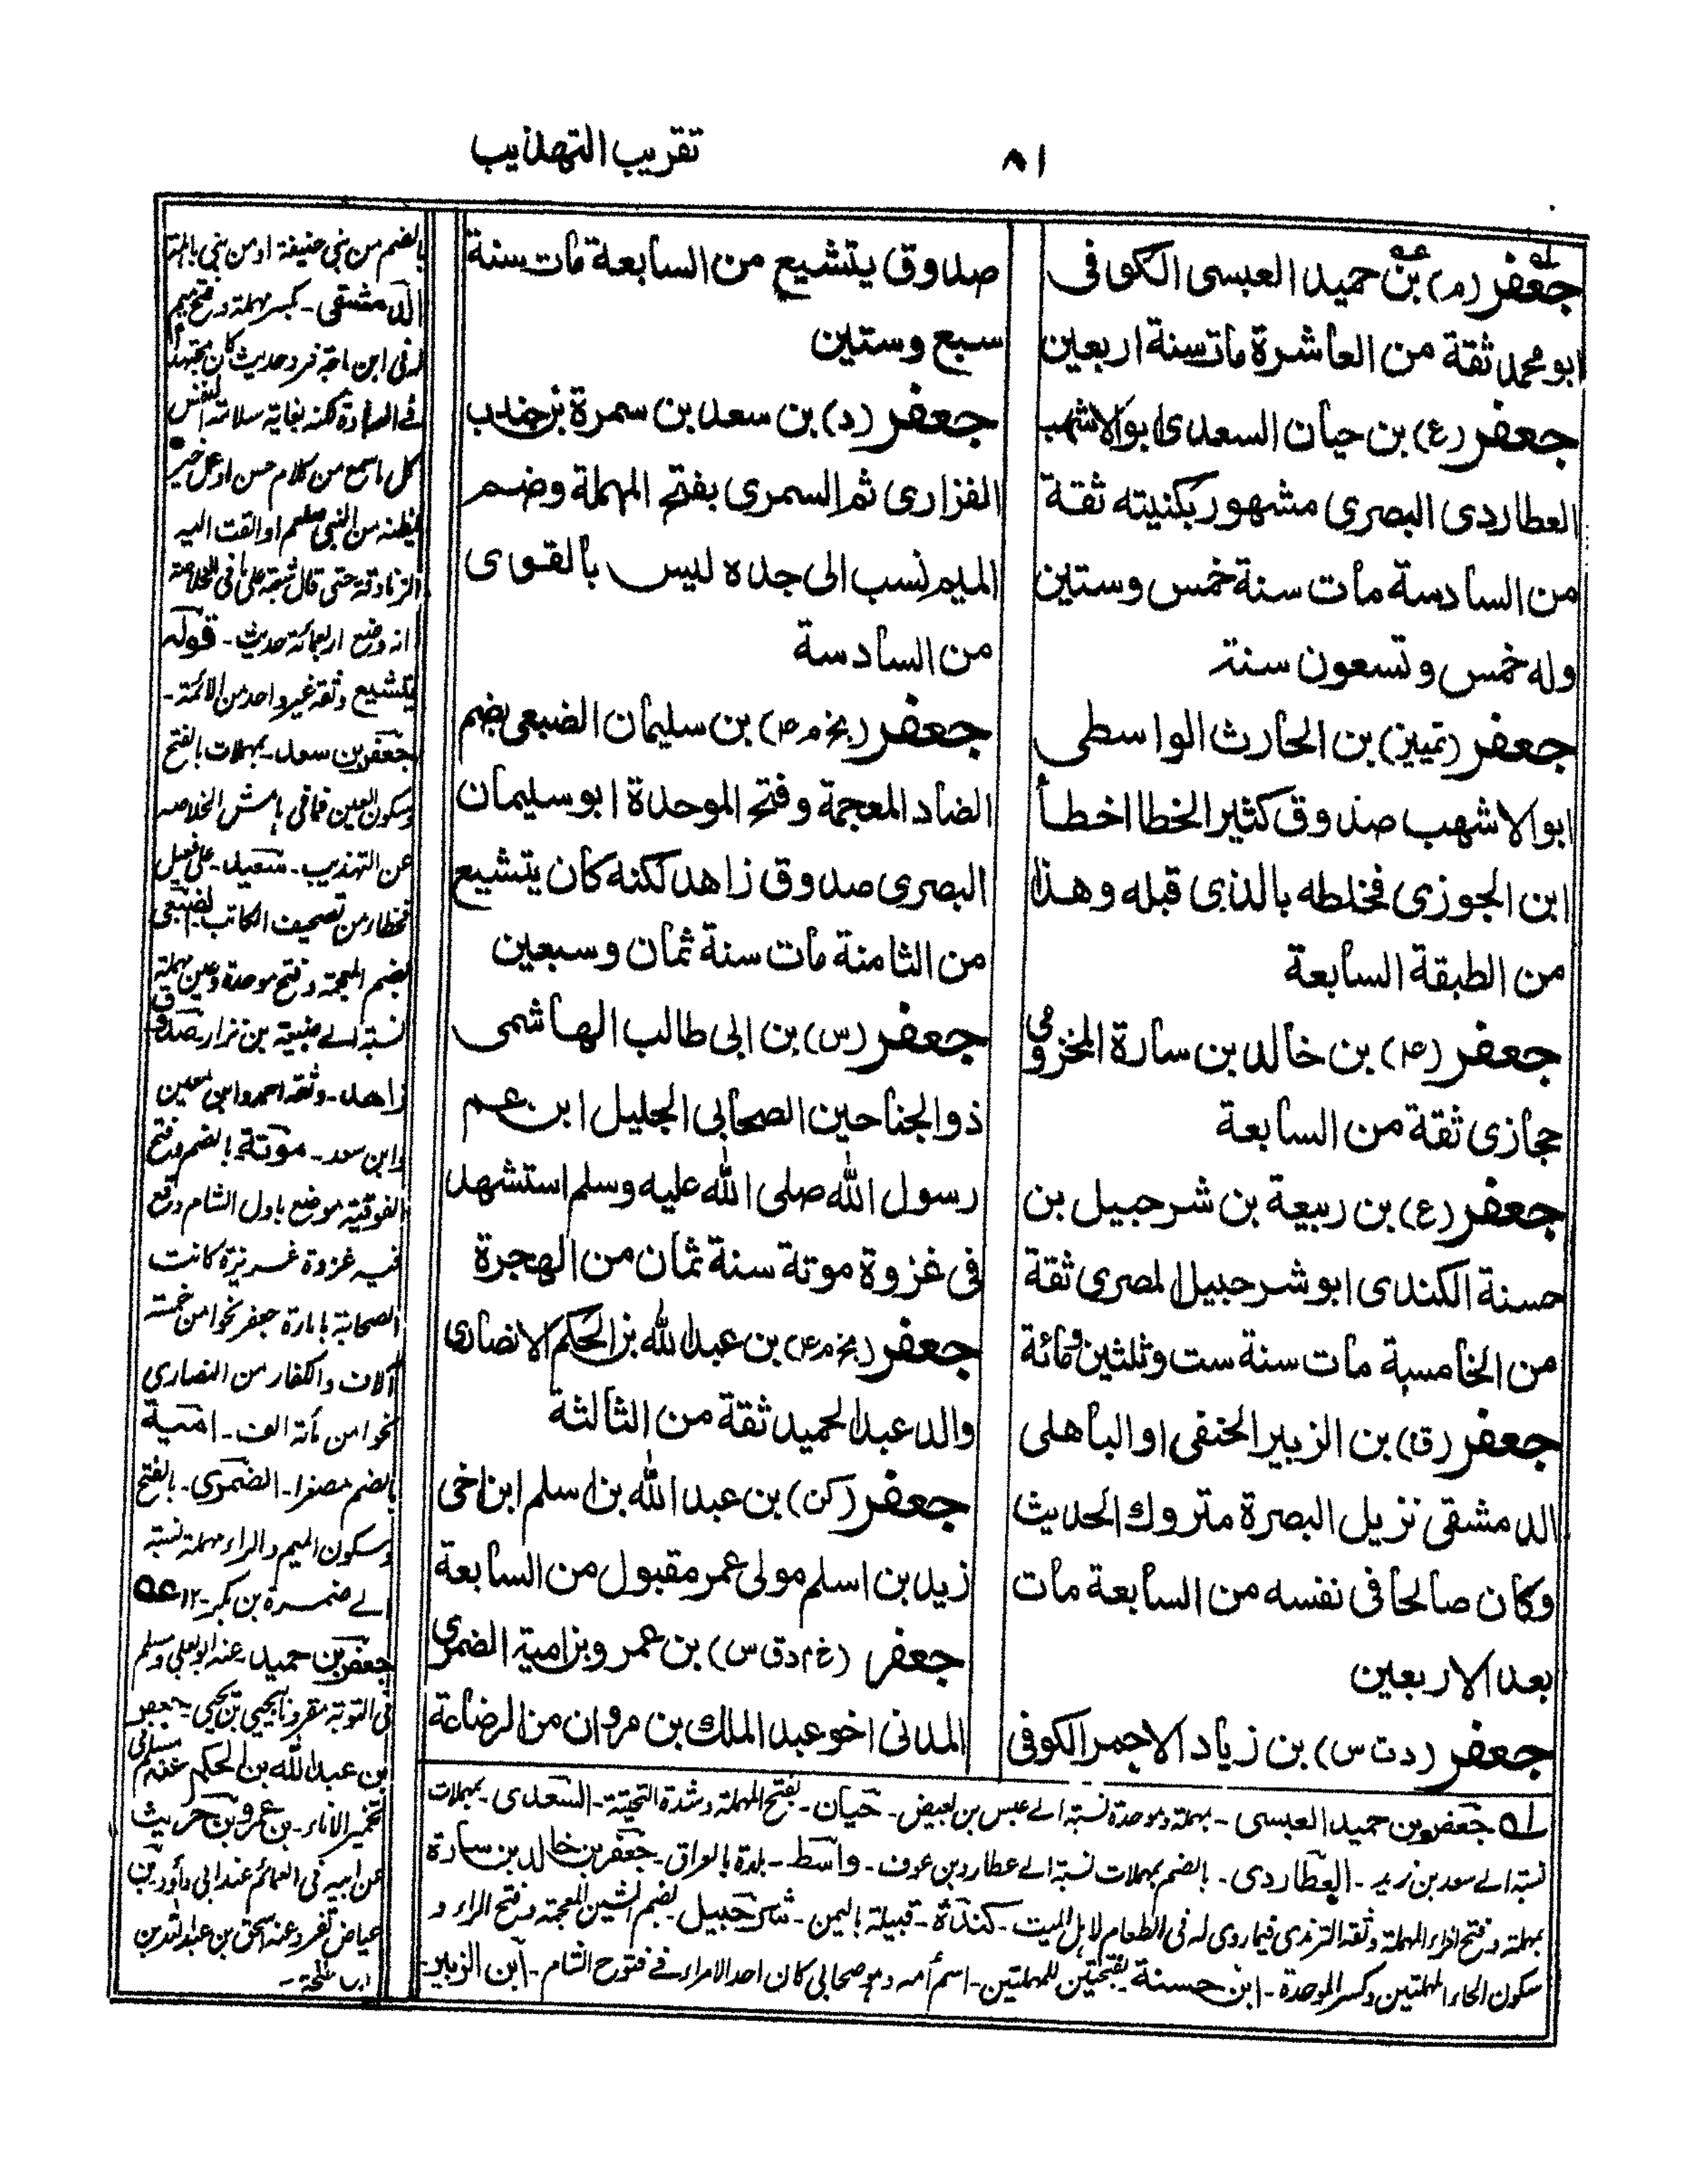 ٨١
تقريب التهذيب
جعفر (م) بن حميد العبسى الكوفى
ابو محمد ثقة من العاشرة مات سنة اربعين
جعفر (ع) بن حيان السعدى ابو الاشهب
العطاردى البصرى مشهور بكنيته ثقة
من السادسة مات سنة خمس وستين
وله خمس وتسعون سنة
جعفر (تمييز) بن الحارث الواسطى
ابو الاشهب صدوق كثير الخطا اخطأ
ابن الجوزى فخلطه بالذى قبله وهذا
من الطبقة السابعة
جعفر (٤) بن خالد بن سارة المخزومى
حجازى ثقة من السابعة
جعفر (ع) بن ربيعة بن شرحبيل بن
حسنة الكندى ابو شرحبيل المصرى ثقة
من الخامسة مات سنة ست وثلثين ومائة
جعفر (ق) بن الزبير الحنفى او الباهلى
الدمشقى نزيل البصرة متروك الحديث
وكان صالحا فى نفسه من السابعة مات
بعد الاربعين
جعفر (د ت س) بن زياد الاحمر الكوفى
صدوق يتشيع من السابعة مات سنة
سبع وستين
جعفر (د) بن سعد بن سمرة بن جندب
الفزارى ثم السمرى بفتح المهملة وضم
الميم نسب الى جده ليس بالقوى
من السادسة
جعفر (بخ م ٤) بن سليمان الضبعى بضم
الضاد المعجمة وفتح الموحدة ابو سليمان
البصرى صدوق زاهد لكنه كان يتشيع
من الثامنة مات سنة ثمان وسبعين
جعفر (س) بن ابى طالب الهاشمى
ذو الجناحين الصحابى الجليل ابن عم
رسول الله صلى الله عليه وسلم استشهد
فى غزوة موتة سنة ثمان من الهجرة
جعفر (بخ م ٤) بن عبد الله بن الحكم الانصارى
والد عبد الحميد ثقة من الثالثة
جعفر (كن) بن عبد الله بن اسلم ابن اخى
زيد بن اسلم مولى عمر مقبول من السابعة
جعفر (خ م د ق س) بن عمرو بن امية الضمرى
المدنى اخو عبد الملك بن مروان من الرضاعة
جعفر بن حميد العبسى - بمهملة وموحدة نسبة الے عبس بن بغيض - حيان - بفتح المهملة وشدة التحتية - السعدى - بمهملات
نسبة الے سعد بن زيد - العطاردى - بالضم بمهملات نسبة الے عطارد بن عوف - واسط - بلدة بالعراق - جعفر بن خالد بن سارة
بمهملة وفتح الراء المهملة وثقه الترمذى فيما روى له فى الطعام لاهل الميت - كندة - قبيلة باليمن - شرحبيل - بضم الشين المعجمة وفتح الراء و
سكون الحاء المهملتين وكسر الموحدة - ابن حسنة بفتحتين للمهملتين - اسم أمه وهو صحابى كان احد الامراء فے فتوح الشام - ابن الزبير
بالضم من بنى حنيفة او من بنى باهلة
الدمشقى - بكسر مهملة وفتح ميم
له فى ابن ماجة فرد حديث كان مجتهدا
فے العبادة لكنه بغاية سلامة النفس
كل ما سمع من كلام حسن او عمل خير
يظنه من النبى صلعم او القت اليه
الزنادقة حتى قال شعبة على ما فى الخلاصة
انه وضع اربعمائة حديث - قوله
يتشيع وثقه غير واحد من الائمة -
جعفر بن سعد - بمهملات بالفتح
وسكون العين فما فى هامش الخلاصه
عن التهذيب - سعيد - على فعيل
فخطأ من تصحيف الكاتب الضبعى
بضم المعجمة وفتح موحدة وعين مهملة
نسبة الے ضبيعة بن نزار - صدوق
زاهد - وثقه احمد وابن معين
وابن سعد - موتة بالضم وفتح
الفوقية موضع باول الشام وقع
فيه غزوة غريزة كانت
الصحابة بامارة جعفر نحوا من خمسة
آلاف والكفار من النصارى
نحوا من مأته الف - امية
بالضم مصغرا - الضمرى - بالفتح
وسكون الميم والراء مهملة نسبة
الے ضمرة بن بكر - ١٢
جعفر بن حميد - عنه ابو يعلى ومسلم
فى التوبة مقرونا بيحيى بن يحيى - جعفر
بن عبد الله بن الحكم عنه مسلم فى
تخمير الاناء - بن عمرو بن حريث
عن ابيه فى العمائم عند ابى داود - بن
عياض تفرد عنه اسحق بن عبد الله بن
ابى طلحة -